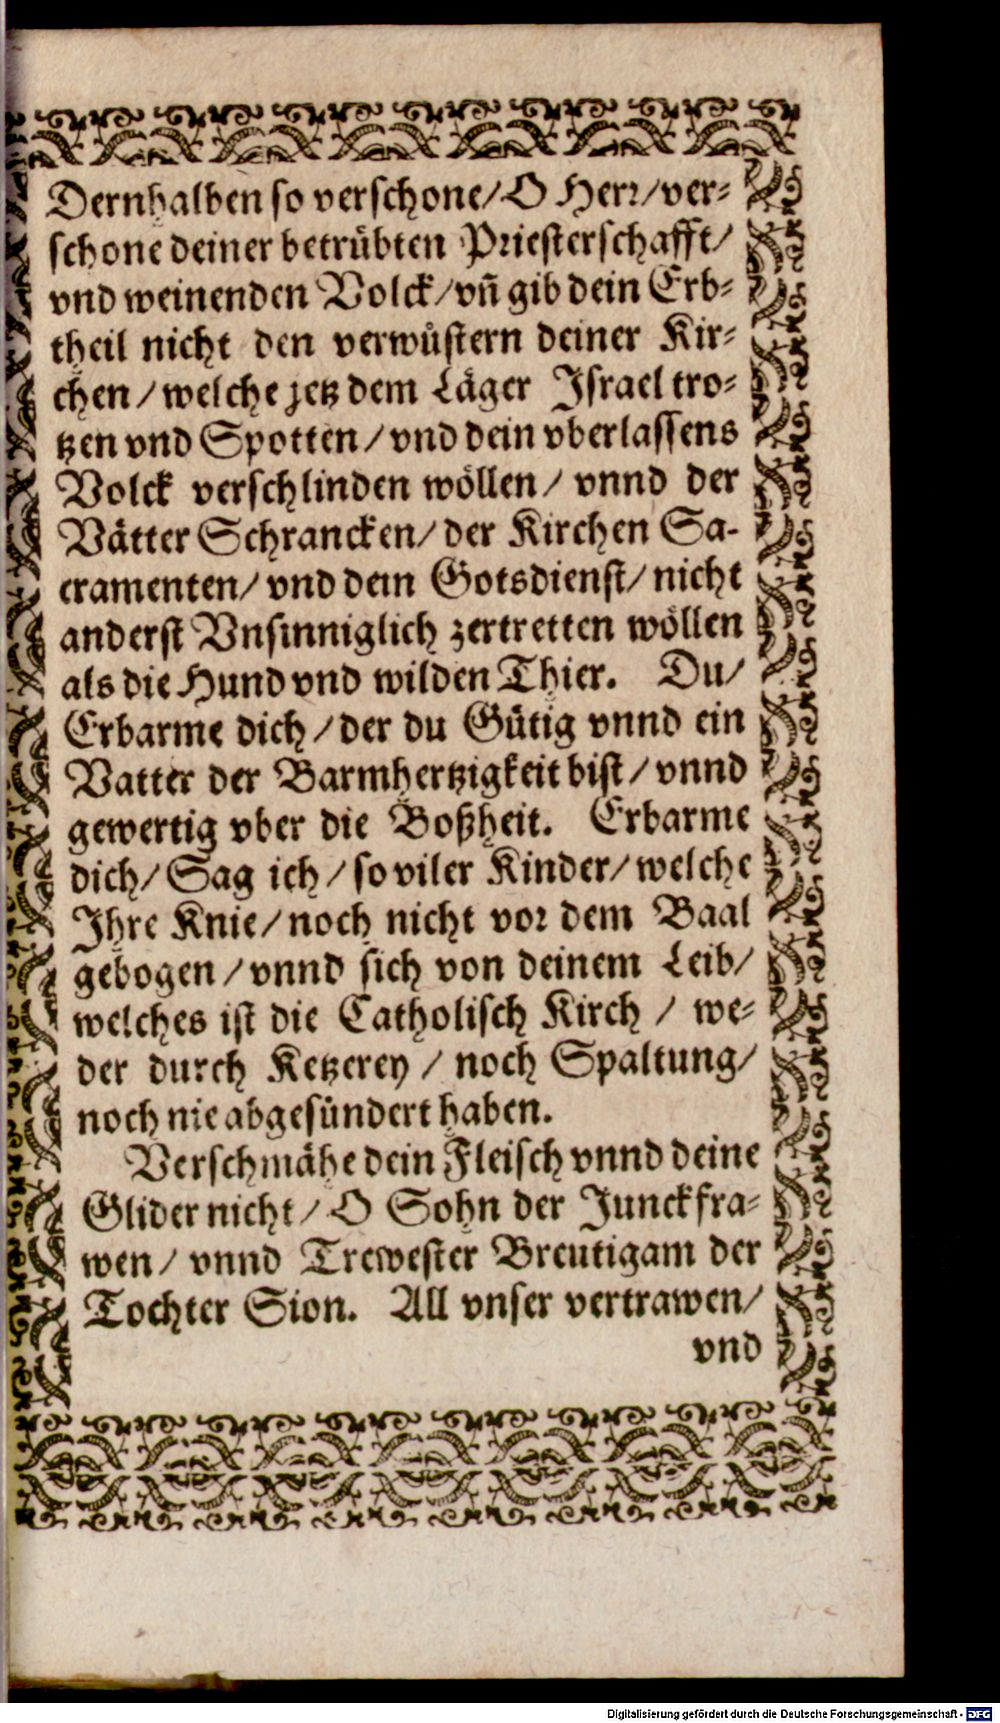 Dernhalben so verschone/ O Herr/ ver-
schone deiner betrübten Priesterschafft/
vnd weinenden Volck/ vñ gib dein Erb-
theil nicht den verwüstern deiner Kir-
chen/ welche jetz dem Läger Israel tro-
tzen vnd Spotten/ vnd dein vberlassens
Volck verschlinden wöllen/ vnnd der
Vätter Schrancken/ der Kirchen Sa-
cramenten/ vnd dem Gotsdienst/ nicht
anderst Vnsinniglich zertretten wöllen
als die Hund vnd wilden Thier. Du/
Erbarme dich/ der du Gütig vnnd ein
Vatter der Barmhertzigkeit bist/ vnnd
gewertig vber die Boßheit. Erbarme
dich/ Sag ich/ so viler Kinder/ welche
Ihre Knie/ noch nicht vor dem Baal
gebogen/ vnnd sich von deinem Leib/
welches ist die Catholisch Kirch/ we-
der durch Ketzerey/ noch Spaltung/
noch nie abgesündert haben.
Verschmähe dein Fleisch vnnd deine
Glider nicht/ O Sohn der Junckfra-
wen/ vnnd Trewester Breutigam der
Tochter Sion. All vnser vertrawen/
vnd
Digitalisierung gefördert durch die Deutsche Forschungsgemeinschaft - DFG